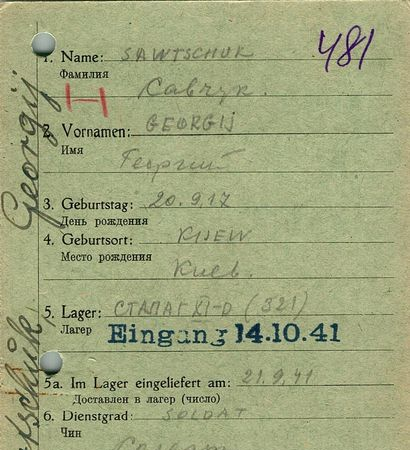 481
1. Name: SAWTSCHUK
Фамилия
Савчук.
2. Vornamen: GEORGIJ
Имя
Георгий
3. Geburtstag: 20.9.17
День рождения
4. Geburtsort: KIJEW
Место рождения
Киев.
5. Lager: СТАЛАГ XI-D (321)
Лагер
Eingang 14.10.41
5a. Im Lager eingeliefert am: 21.9.41
Доставлен в лагер (число)
6. Dienstgrad: SOLDAT
Чин
Georgij